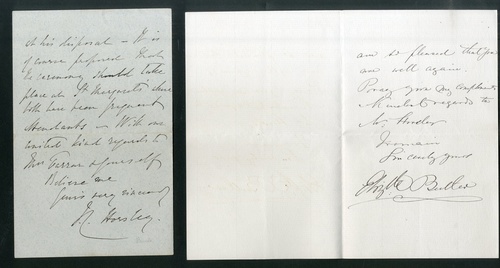 at his disposal – It is
of course prepared that
the ceremony should take
place at St. Margaret's where
both have been frequent
attendants – With our
united kind regards to
Mrs Farrar & yourself
Believe me
Yours very sincerely
J. C. Horsley.
am so pleased that you
are well again.
Pray give my compliments
Kindest regards to
Mr. Butler
I remain
Sincerely yours
Elizth Butler